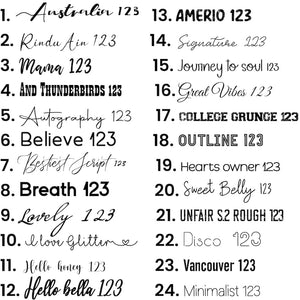 1. Australia 123
2. Rindu Ain 123
3. Mama 123
4. And Thunderbirds 123
5. Autography 123
6. Believe 123
7. Bestiest Script 123
8. Breath 123
9. Lovely 123
10. I love Glitter
11. Hello honey 123
12. Hello bella 123
13. AMERIO 123
14. Signature 123
15. Journey to soul 123
16. Great Vibes 123
17. COLLEGE GRUNGE 123
18. OUTLINE 123
19. Hearts owner 123
20. Sweet Belly 123
21. UNFAIR S2 ROUGH 123
22. Disco 123
23. Vancouver 123
24. Minimalist 123